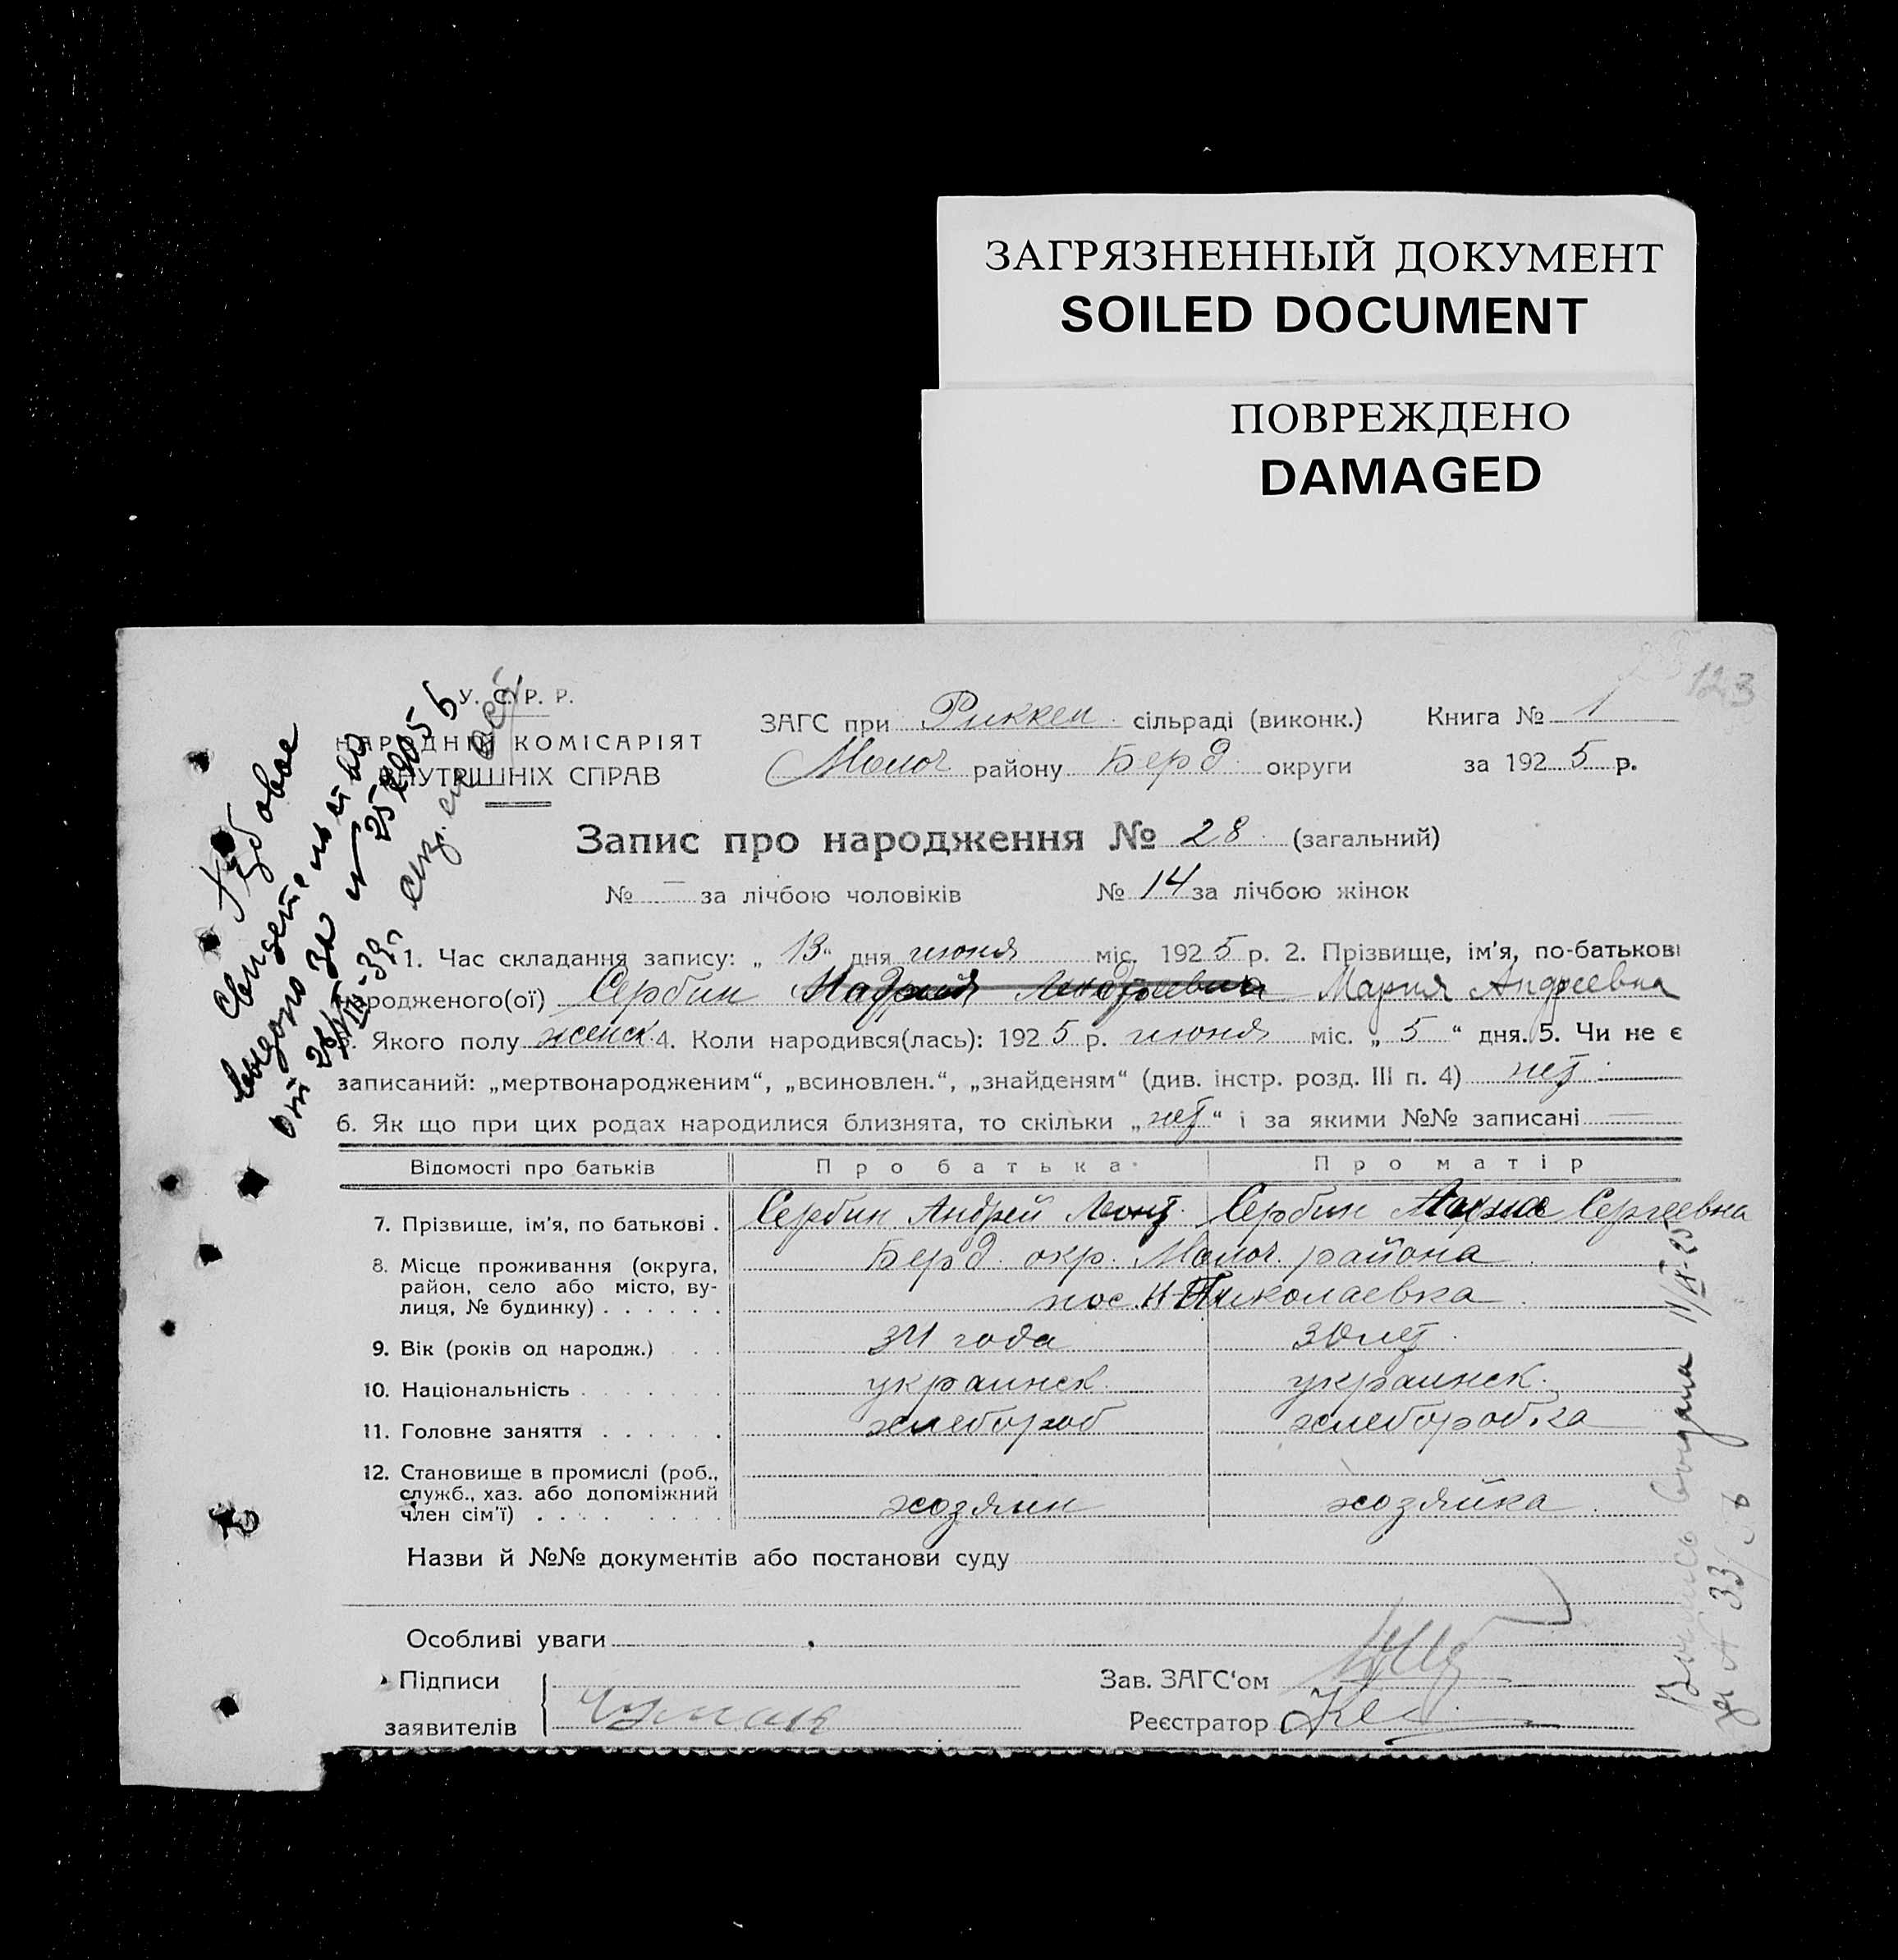 ЗАГРЯЗНЕННЫЙ ДОКУМЕНТ
SOILED DOCUMENT
ПОВРЕЖДЕНО
DAMAGED
123
У. С. Р. Р.
НАРОДНІЙ КОМІСАРІЯТ
ВНУТРІШНІХ СПРАВ
ЗАГС при Риккен. сільраді (виконк.) Книга № 1
Молоч району Берд. округи за 1925 р.
Запис про народження № 28 (загальний)
№ — за лічбою чоловіків № 14 за лічбою жінок
1. Час складання запису: „ 13 “ дня июня міс. 1925 р. 2. Прізвище, ім'я, по-батькові
народженого(ої) Сербин Мария Андреевна
3. Якого полу женск. 4. Коли народився(лась): 1925 р. июня міс. „ 5 “ дня. 5. Чи не є
записаний: „мертвонародженим“, „всиновлен.“, „знайденям“ (див. інстр. розд. III п. 4) нет
6. Як що при цих родах народилися близнята, то скільки „нет“ і за якими №№ записані —
Відомості про батьків Про батька Про матір
7. Прізвище, ім'я, по батькові . Сербин Андрей Леонт. Сербин Сергеевна
8. Місце проживання (округа, район, село або місто, вулиця, № будинку) Берд. окр. Молоч. района
пос. Н-Николаевка
9. Вік (років од народж.) 34 года 30 лет.
10. Національність украинск. украинск.
11. Головне заняття хлебороб хлеборобка
12. Становище в промислі (роб., служб., хаз. або допоміжний член сім'ї) хозяин хозяйка
Назви й №№ документів або постанови суду
Особливі уваги
Підписи
заявителів
Зав. ЗАГС'ом
Реєстратор
свидетельство
выдано за №
от
Выпись выдана
за № 33